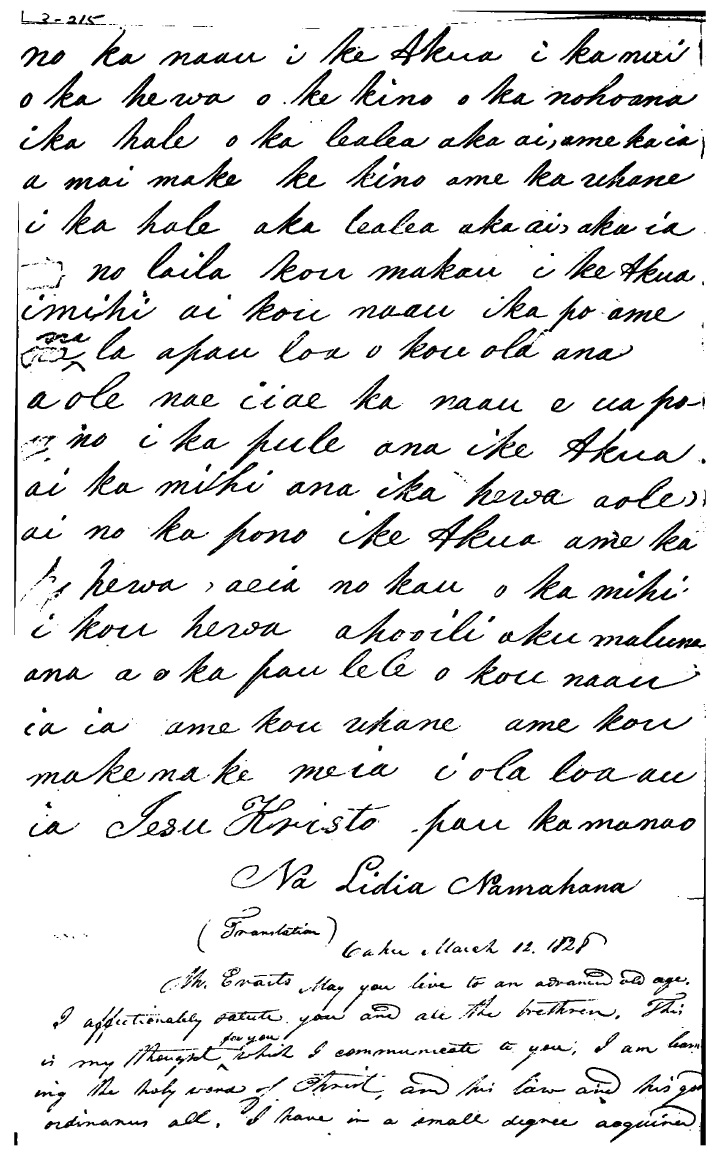 L 3-215
no ka naau i ke Akua i ka nui
o ka hewa o ke kino o ka nohoana
ika hale o ka lealea aka ai, ame ka ia
a mai make ke kino ame ka uhane
i ka hale aka lealea aka ai, aka ia
no laila kou makau i ke Akua.
i mihi ai kou naau ika po ame
ma la apau loa o kou ola ana
aole nae iiae ka naau e ua po-
no i ka pule ana ike Akua.
ai ka mihi ana ika hewa aole,
ai no ka pono ike Akua ame ka
hewa, aeia no kau o ka mihi
i kou hewa ahooili aku maluna
ana a o ka paulele o kou naau
ia ia ame kou uhane ame kou
makemake meia i ola loa au
ia Jesu Kristo pau ka manao
Na Lidia Namahana
(Translation)
Oahu March 12. 1828
Mr. Evarts May you live to an advanced old age.
I affectionably salute you and all the brethren. This
is my thought for you which I communicate to you; I am learn
ing the holy word of Christ, and his law and his good
ordinances all. I have in a small degree acquired